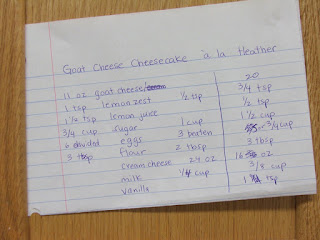 Goat Cheese Cheesecake à la Heather
20
11 oz goat cheese/
1 tsp lemon zest ½ tsp 3/4 tsp
1½ tsp lemon juice ½ tsp
3/4 cup sugar 1 cup 1½ cup
6 divided eggs 3 beaten 3/4 cup
3 tbsp flour 2 tbsp 3 tbsp
cream cheese 24 oz 16 oz
milk 1/4 cup 3/8 cup
vanilla 1 tsp